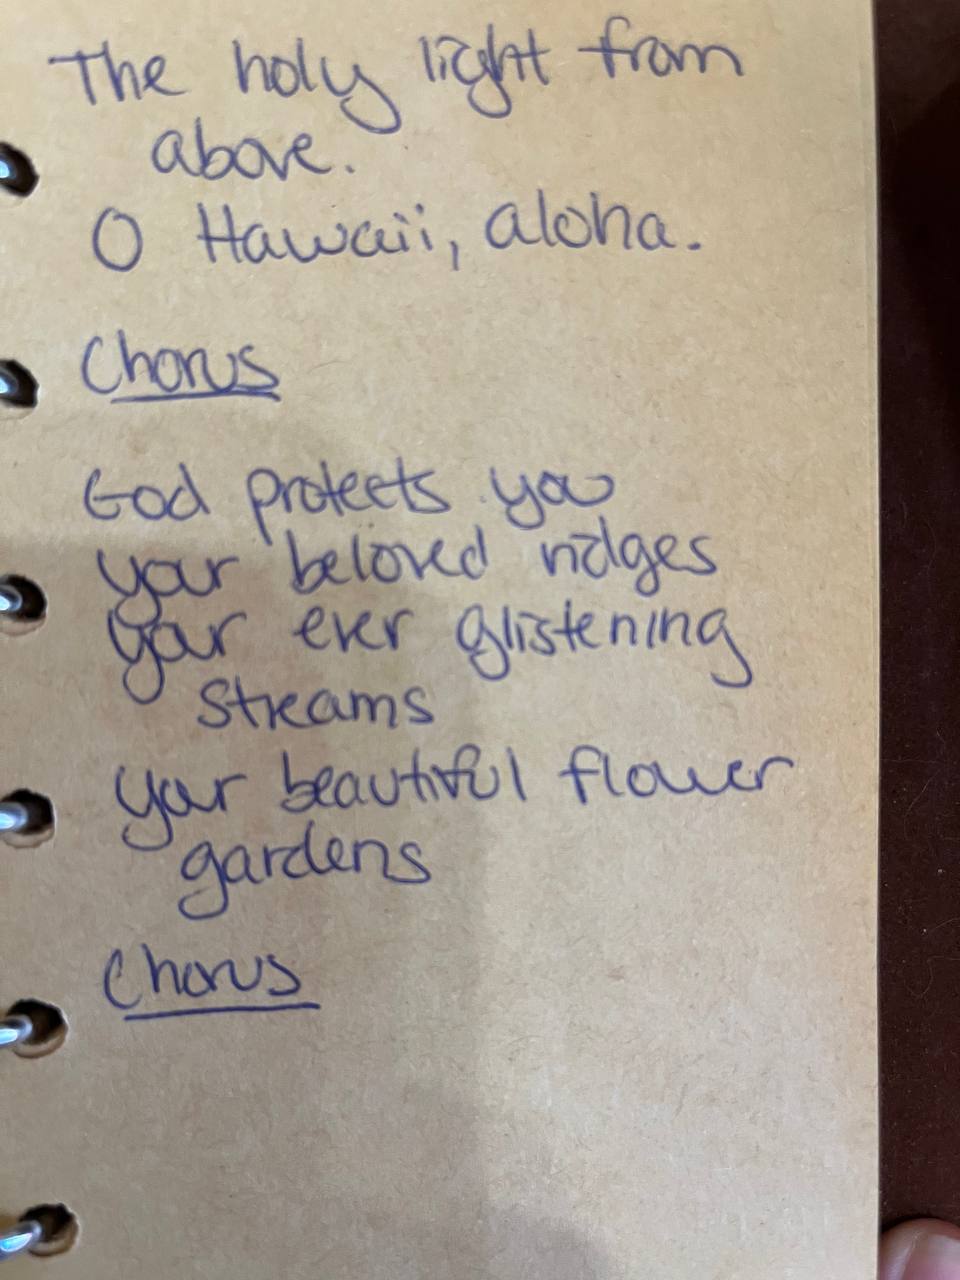 The holy light from
above.
O Hawaii, aloha.
Chorus
God protects you
your beloved ridges
your ever glistening
streams
your beautiful flower
gardens
Chorus